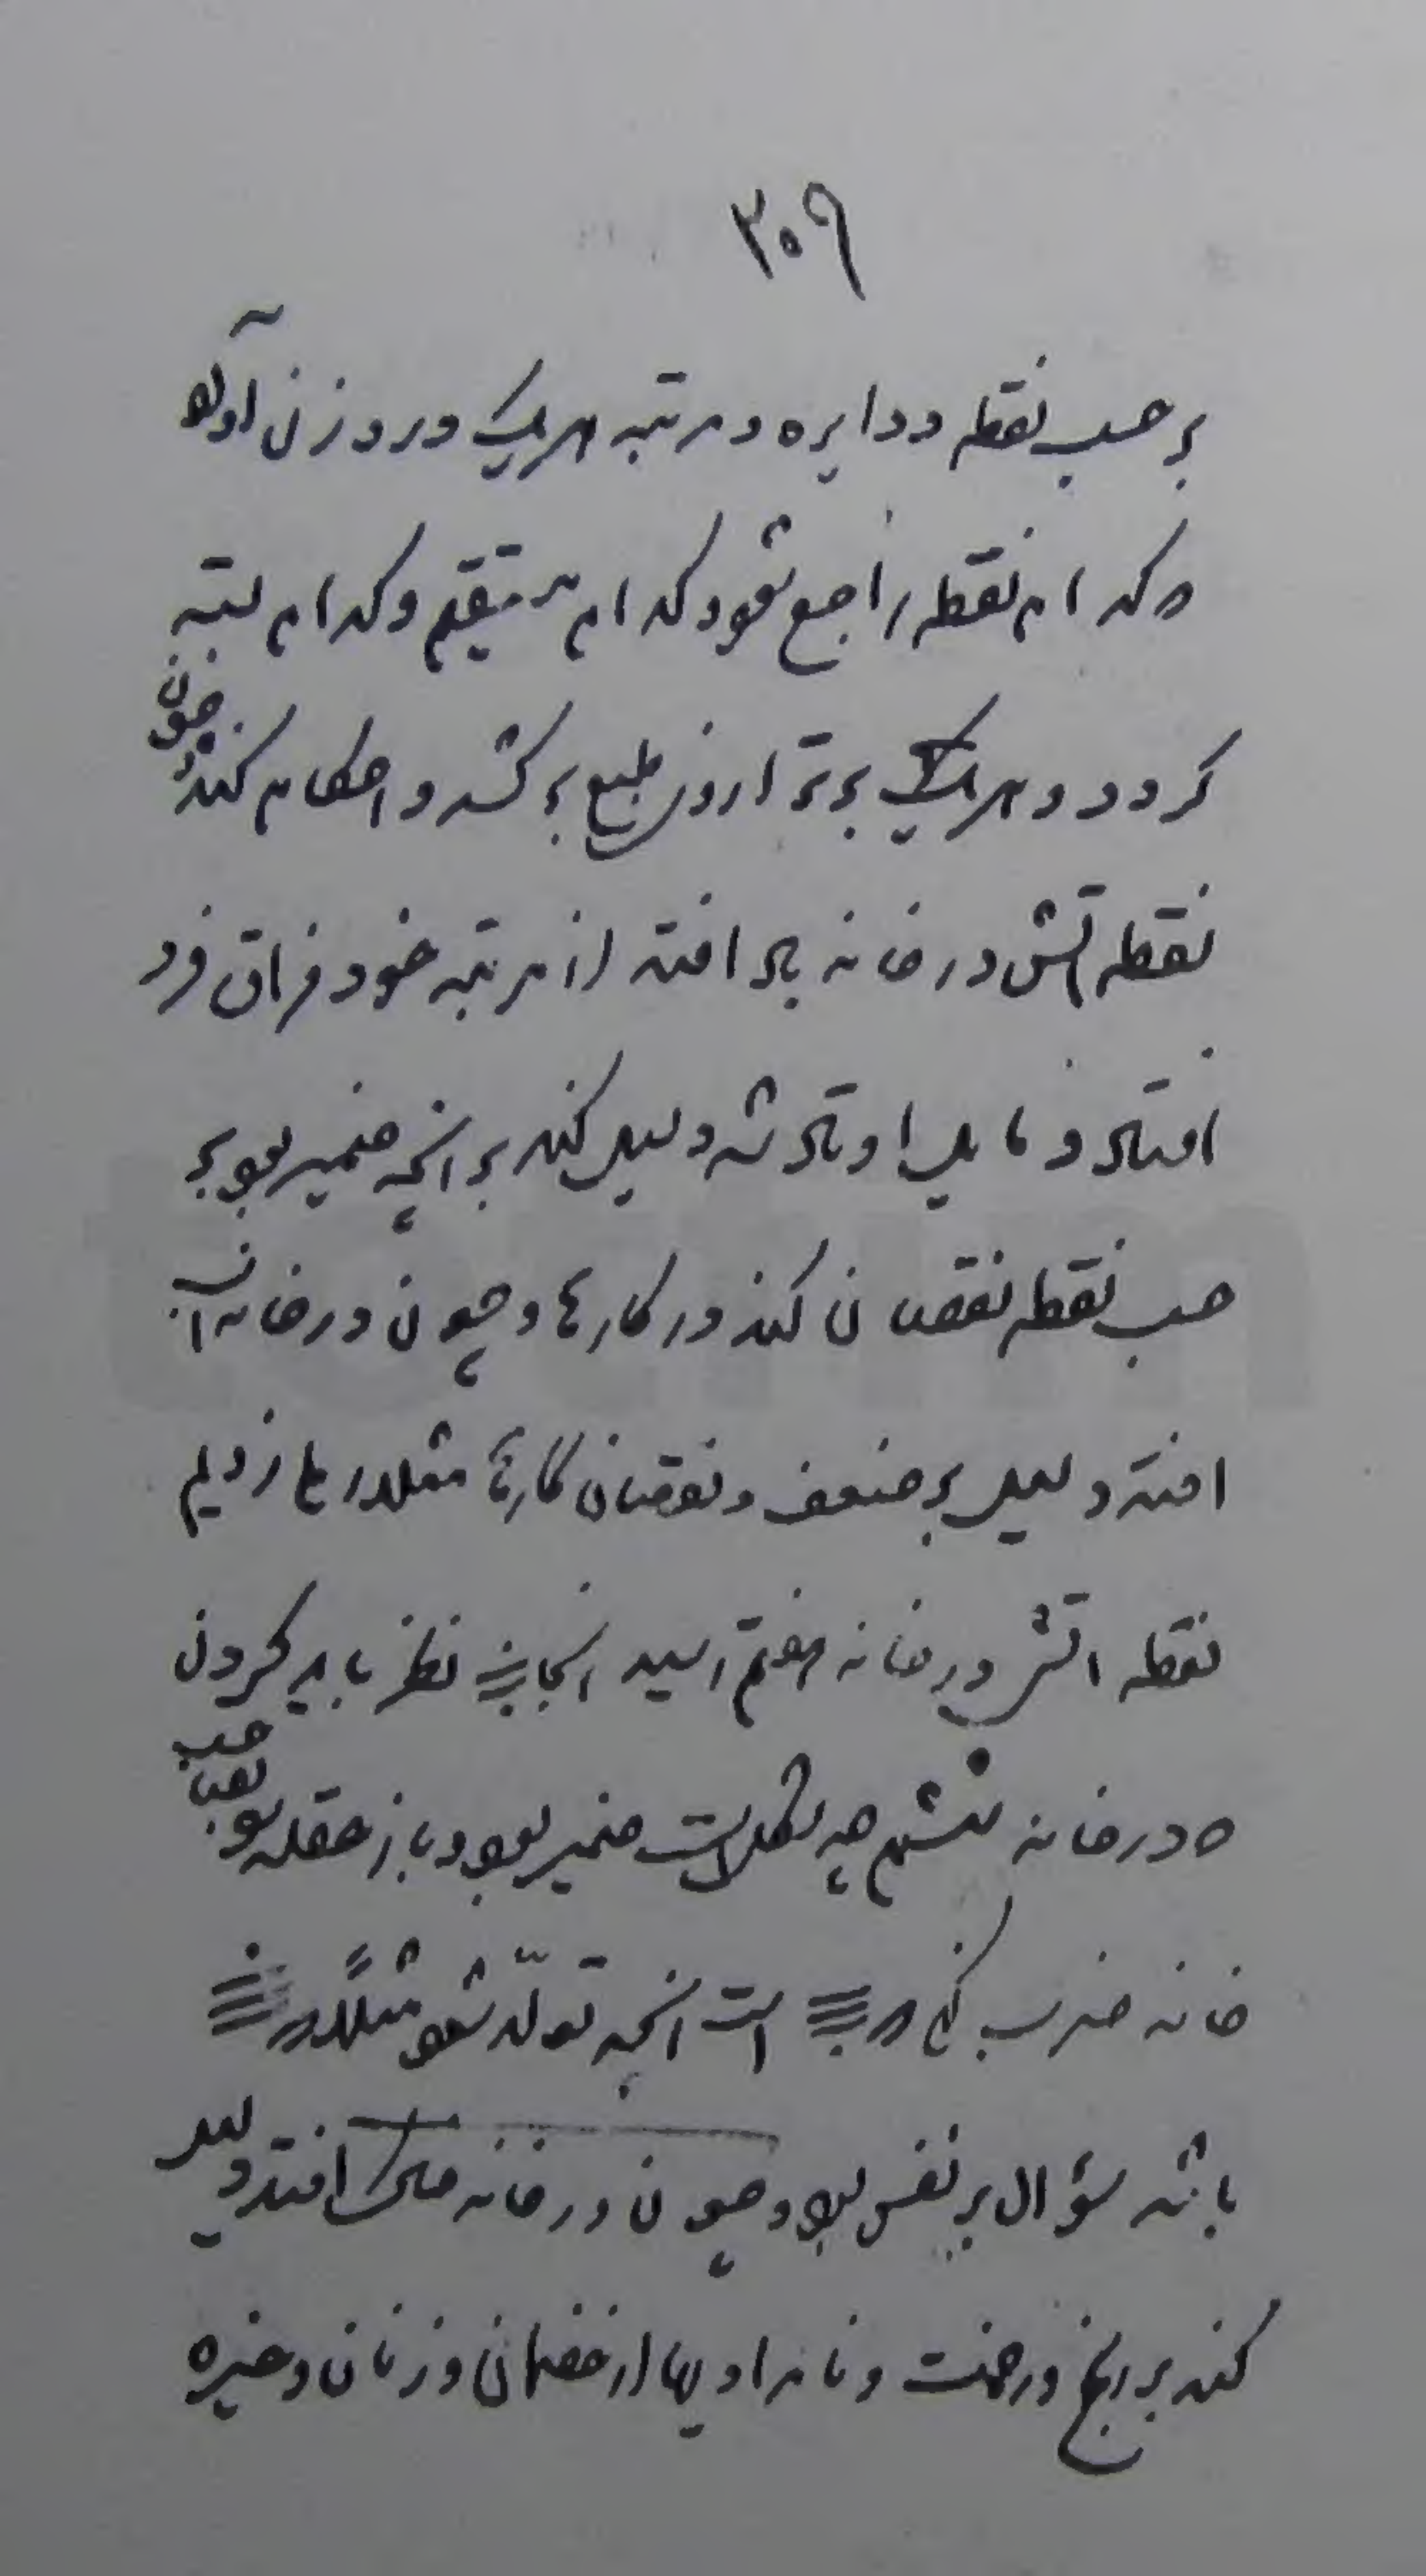 ۳۰۹
بر حسب نقطه و دایره و مرتبه هریک در وزن آورد
و کدام نقطه راجع شود کدام مستقیم و کدام بسته
کردد و هریک بر ترازوی طبع بر کشد و احکام کند چون
نقطه آتش در خانه باد افتد از مرتبه خود فراق فرد
افتاد و مایل اوتاد شد دلیل کند بر انچه ضمیر بود بر
حسب نقطه نقصان کند در کارها و چون در خانه آب
افتد دلیل بر ضعف و نقصان کارها مثلا رمل زدیم
نقطه اتش در خانه هفتم رسید انجا نظر باید کردن
و در خانه ششم چه شکلست ضمیر بود و باز عقله بود حسب
خانه ضرب کنی در است انچه تولّد شود مثلاً در
باشد سؤال بر نفس بود و چون در خانه خاک افتد دلیل
کند بر رنج و زحمت و نامرادیها از خصمان و زنان و غیره